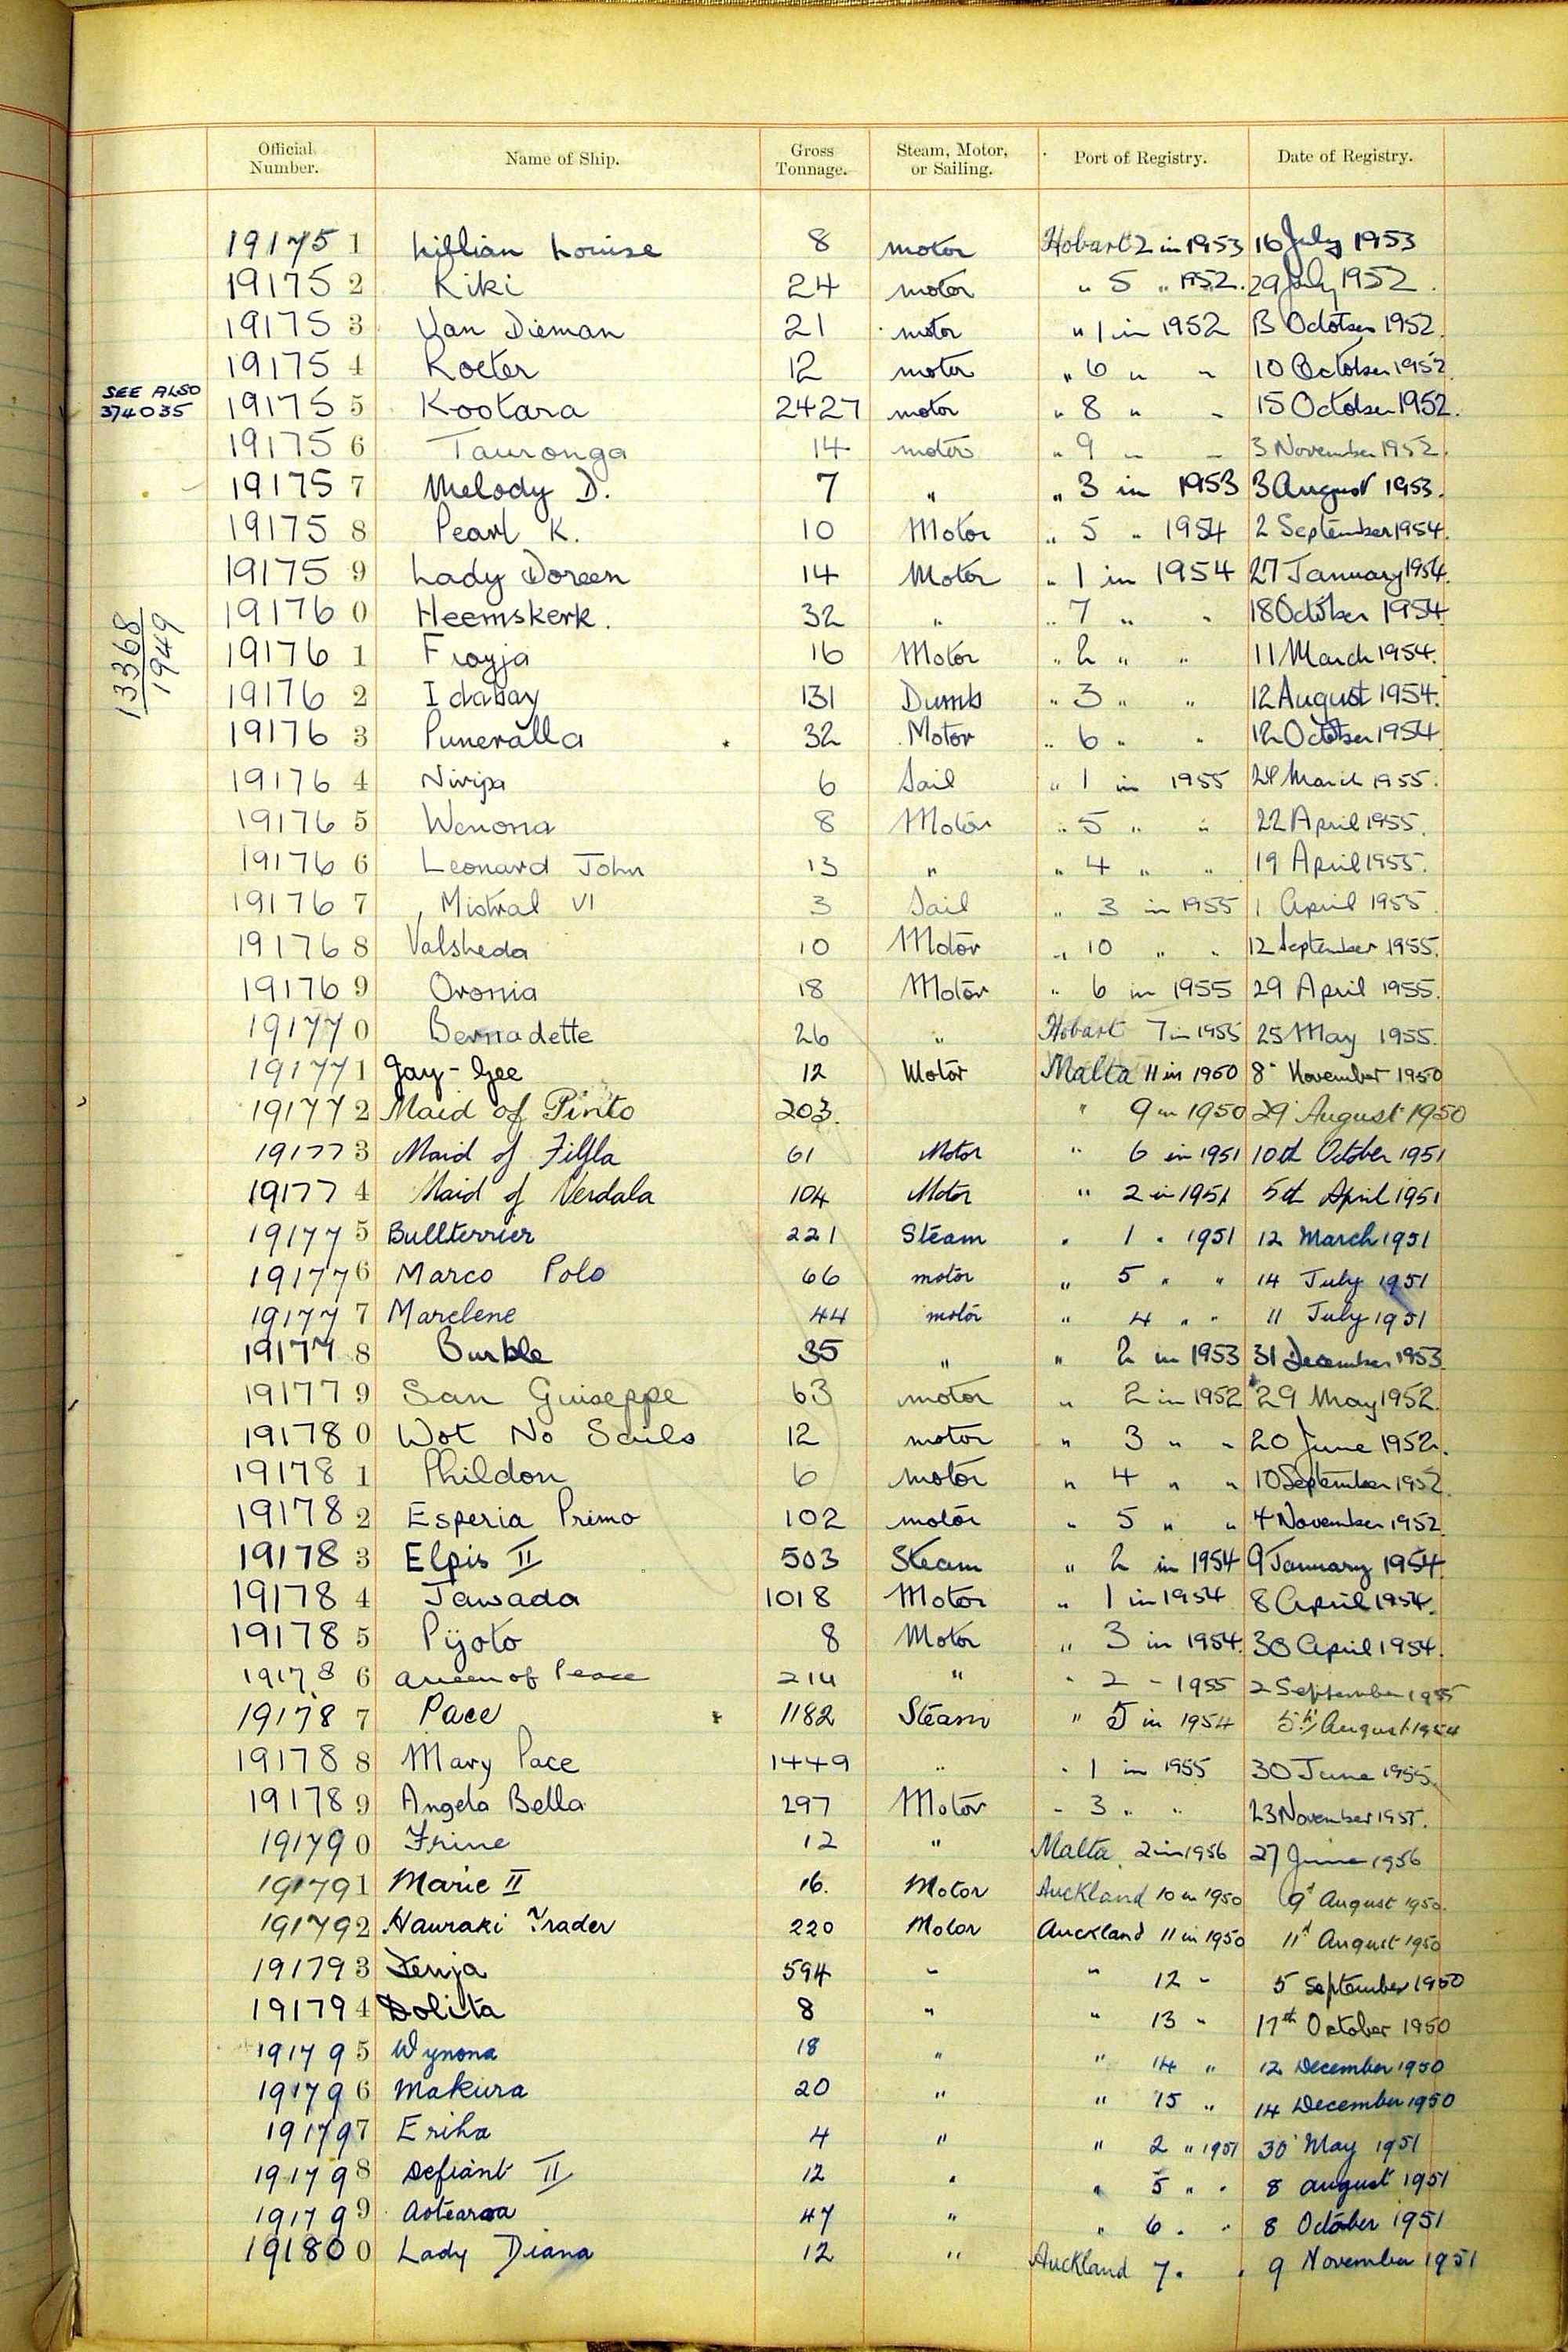 Official Number. Name of Ship. Gross Tonnage. Steam, Motor, or Sailing. Port of Registry. Date of Registry.
191751 Lillian Louise 8 motor Hobart 2 in 1953 16 July 1953
191752 Kiki 24 motor " 5 " 1952. 29 July 1952.
191753 Van Dieman 21 motor " 1 in 1952 13 October 1952.
191754 Koeter 12 motor " 6 " " 10 October 1952.
SEE ALSO 374035 191755 Kootara 2427 motor " 8 " " 15 October 1952.
191756 Tauronga 14 motor " 9 " " 3 November 1952.
191757 Melody D. 7 " " 3 in 1953 3 August 1953.
191758 Pearl K. 10 Motor " 5 " 1954 2 September 1954.
191759 Lady Doreen 14 Motor " 1 in 1954 27 January 1954.
191760 Heemskerk. 32 " " 7 " " 18 October 1954
13368
1949
191761 Froyja 16 Motor " 2 " " 11 March 1954.
191762 Idabay 131 Dumb " 3 " " 12 August 1954.
191763 Puneralla 32 Motor " 6 " " 12 October 1954
191764 Niripa 6 Sail " 1 in 1955 March 1955.
191765 Wenona 8 Motor " 5 " " 22 April 1955.
191766 Leonard John 13 " " 4 " " 19 April 1955.
191767 Mistral VI 3 Sail " 3 in 1955 1 April 1955
191768 Valsheda 10 Motor " 10 " " 12 September 1955.
191769 Oronia 18 Motor " 6 in 1955 29 April 1955.
191770 Bernadette 26 " Hobart 7 in 1955 25 May 1955.
191771 Gay-Gee 12 Motor Malta 11 in 1950 8 November 1950
191772 Maid of Pinto 203. " 9 in 1950 29 August 1950
191773 Maid of Filfla 61 Motor " 6 in 1951 10th October 1951
191774 Maid of Verdala 104 Motor " 2 in 1951 5th April 1951
191775 Bullterrier 221 Steam " 1 " 1951 12 March 1951
191776 Marco Polo 66 motor " 5 " " 14 July 1951
191777 Marclene 44 motor " 4 " " 11 July 1951
191778 Burble 35 " " 2 in 1953 31 December 1953
191779 San Guiseppe 63 motor " 2 in 1952 29 May 1952.
191780 Wot No Sails 12 motor " 3 " " 20 June 1952.
191781 Phildon 6 motor " 4 " " 10 September 1952.
191782 Esperia Primo 102 motor " 5 " " 4 November 1952.
191783 Elpis II 503 Steam " 2 in 1954 9 January 1954.
191784 Jawada 1018 Motor " 1 in 1954 8 April 1954.
191785 Pijoto 8 Motor " 3 in 1954. 30 April 1954.
191786 Queen of Peace 214 " " 2 " 1955 2 September 1955
191787 Pace 1182 Steam " 5 in 1954 5th August 1954
191788 Mary Pace 1449 " " 1 in 1955 30 June 1955.
191789 Angela Bella 297 Motor " 3 " " 23 November 1955.
191790 Frine 12 " Malta 2 in 1956 27 June 1956
191791 Marie II 16. Motor Auckland 10 in 1950 9 August 1950.
191792 Hauraki Trader 220 Motor Auckland 11 in 1950 11 August 1950
191793 Tenja 594 " " 12 " 5 September 1950
191794 Dolita 8 " " 13 " 17th October 1950
191795 Wynona 18 " " 14 " 12 December 1950
191796 Makura 20 " " 15 " 14 December 1950
191797 Eriha 4 " " 2 " 1951 30 May 1951
191798 Defiant II 12 " " 5 " " 8 August 1951
191799 Aotearoa 47 " " 6 " " 8 October 1951
191800 Lady Diana 12 " Auckland 7 " " 9 November 1951